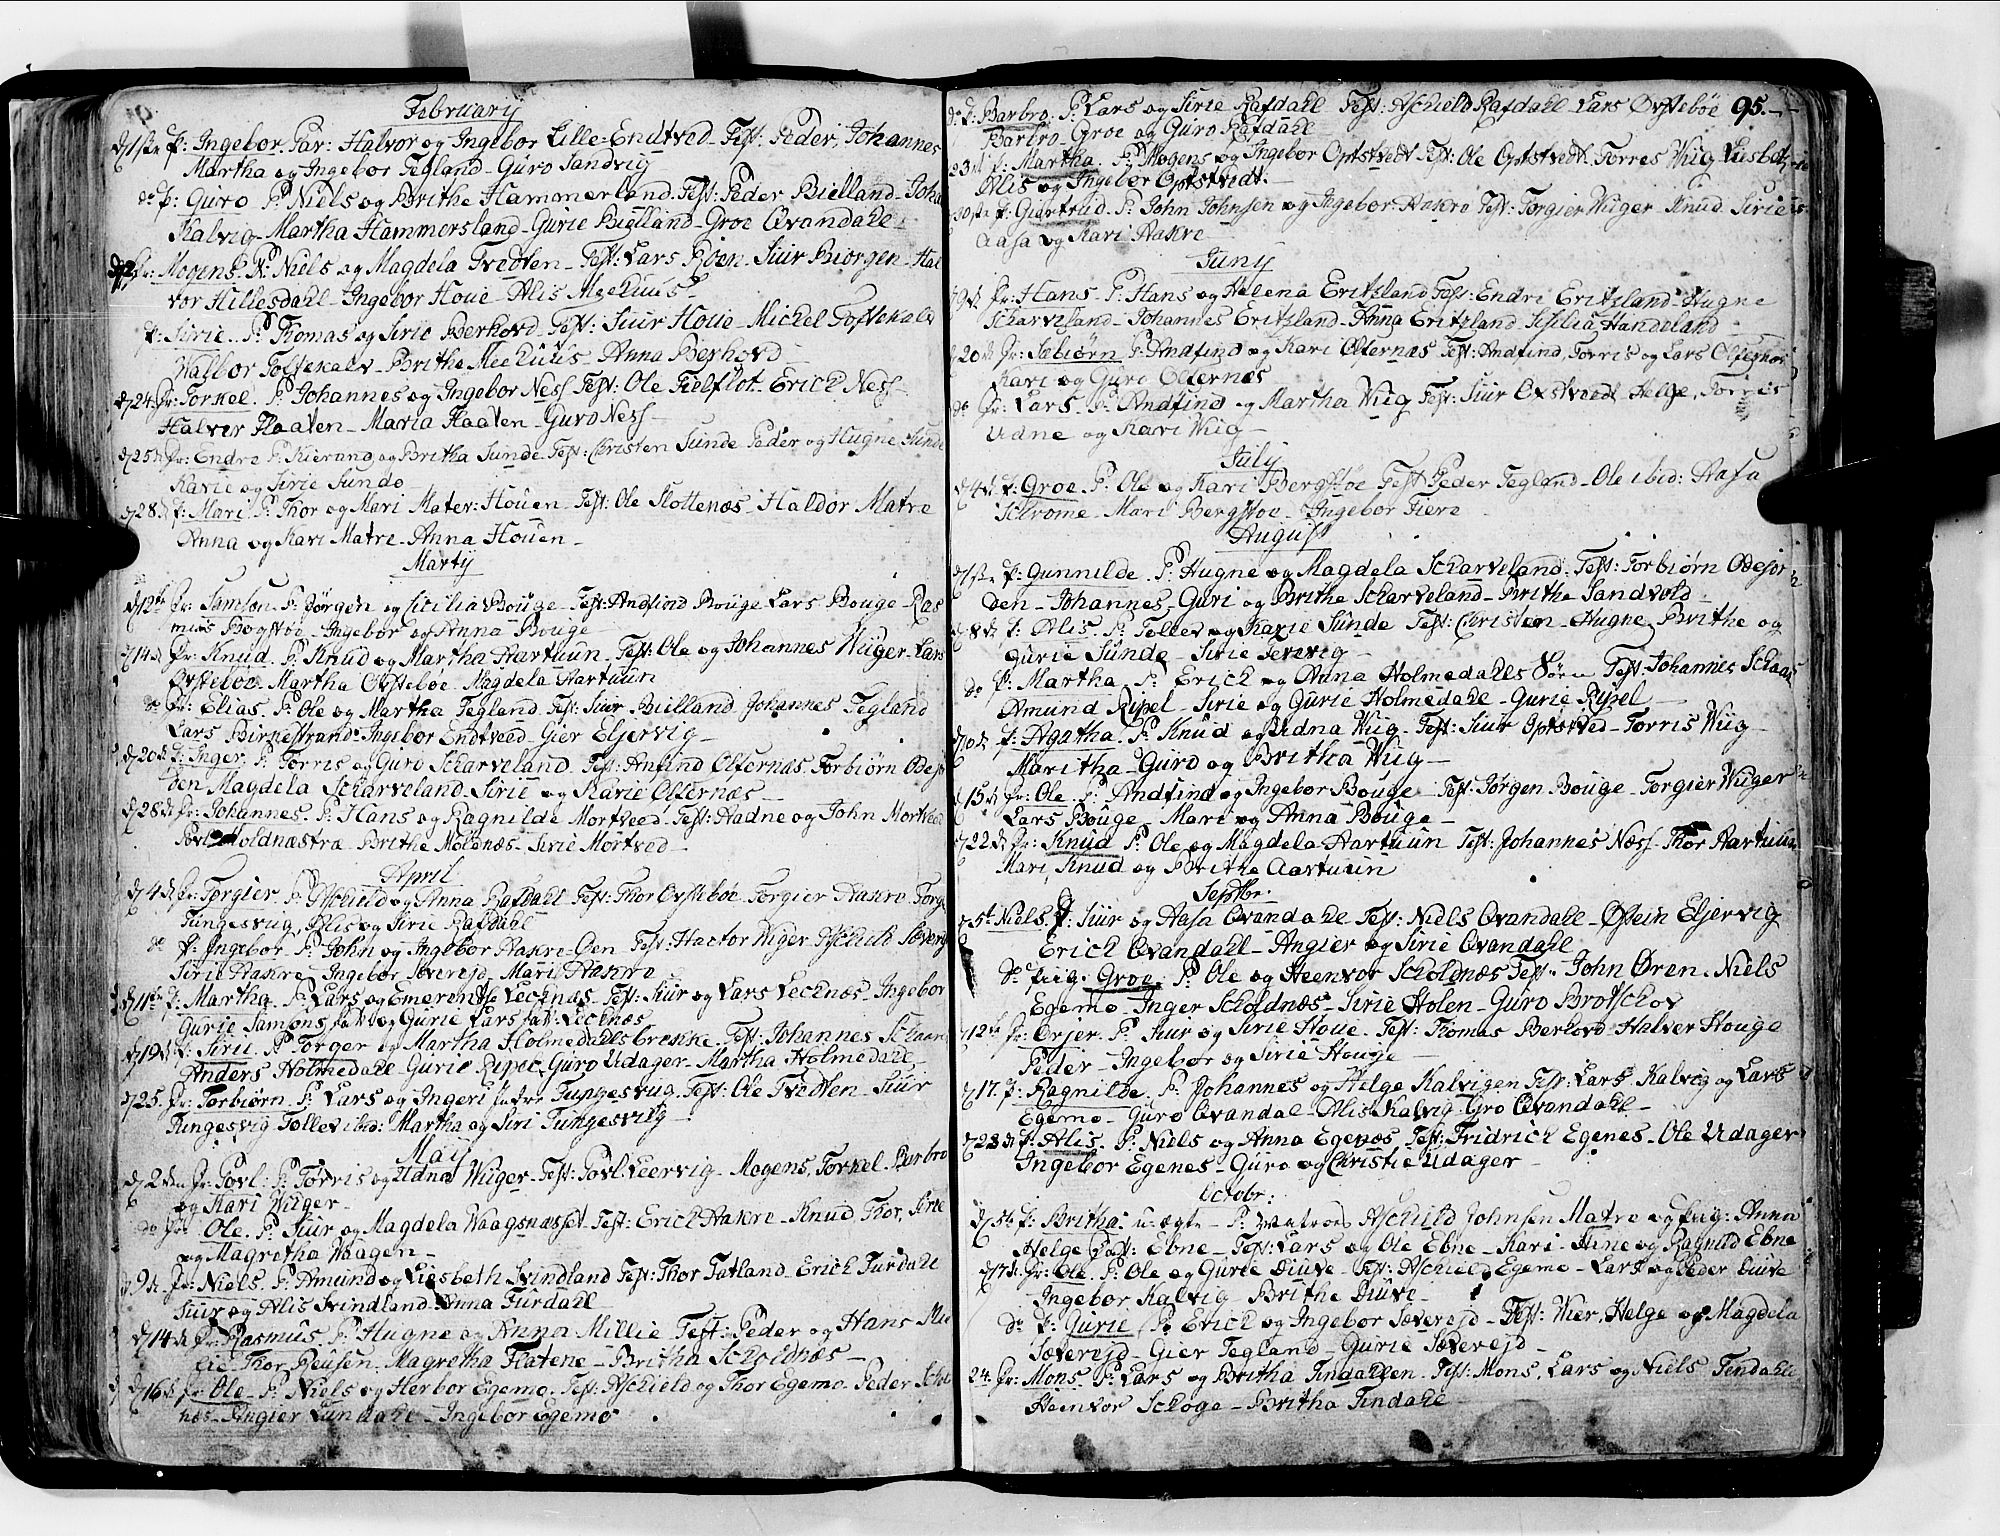 February
d 1ste P: Ingebor. Par: Halvor og Ingebor Lille-Endtved. Test: Peder, Johannes
Martha og Ingebor Tegland - Guro Sandvig
do P: Guro P: Niels og Brithe Hammerland. Test: Peder Bielland - Joha
Kalvig - Martha Hammersland - Gurie Bielland - Groe Qvandahl.
dr: Mogens. P: Niels og Magdela Tvedten - Test: Lars Røen - Siur Biørgen - Hal
vor Hillesdahl - Ingebor Houe - Alis
P: Sirie. P: Thomas og Sirie Berhovd - Test: Siur Houe - Michel Toftekalv
Walbor Toftekalv - Brithe Meehuus Anna Berhovd
d 24. dr: Torkel. P: Johannes og Ingebor Ness Test: Ole Fielflot. Erich Ness
Halvor Flaaten - Maria Flaaten - Guro Ness
d 25 dr: Endre P: og Britha Sunde. Test: Christen Sunde Peder og Hugne Sunde
Karie og Sirie Sunde
d 28. P: Mari. P: Thor og Mari Mater: Houen - Test: Ole Slottenæs - Haldor Matre
Anna og Kari Matre - Anna Houen -
Marty
d 12te dr: Samson P: Jørgen og Sicilia Bouge - Test: Andfind Bouge - Lars Bouge - Ras
mus Bogstøe - Ingebor og Anna Bouge
d 14 dr: Knud. P: Knud og Martha Aartuun - Test: Ole og Johannes Wiiger - Lars
Øvstebøe - Martha Øvstebøe - Magdela Aartuun
do dr: Elias. P: Ole og Martha Tegland - Test: Siur Bielland Johannes Tegland
Lars Birkestrand - Ingebor Endtveed - Gier Eljervig -
d 20 P: Inger. P: Torris og Guro Scharveland - Test: Amund Olfernæs Torbiørn Odejor
den Magdela Scharveland - Sirie og Karie Olfernæs
d 28 dr: Johannes. P: Hans og Ragnilde Mortveed - Test: Aadne og John Mortveed
Povl Holdnæstræ - Brithe Moldnæs - Sirie Mortved -
April
d 4 dr: Torgier. P: Aschield og Anna Rafdahl Test: Thor Øvstebøe - Torgier Aakre Torge
Tungesviig, Alis og Sirie Rafdahl
do P: Ingebor. P: John og Ingebor Aakre-Øen - Test: Hactor Wiger - Aschield Severej
Sirie Aakre - Ingebor Severejd - Mari Aakre
d 11te P: Martha. P: Lars og Emerentse Lecknæs - Test: Siur og Lars Lecknæs - Ingebor
Gurie Samsons dat og Gurie Lars dat: Lecknæs
d 19 P: Sirie P: Torger og Martha Holmedahlsbrekke - Test: Johannes Schaar
Anders Holmedahl - Gurie Ripel - Guro Udager - Martha Holmedahl
d 25. dr: Torbiørn P: Lars og Ingeri Tungesvug - Test: Ole Tvedten - Siur
Tungesvig Tollev ibid: Martha og Siri Tungesviig -
May
d 2den dr: Povl: P: Torris og Udna Wiiger - Test: Povl: Leervig - Mogens, Torkel - Barbro
og Kari Wiiger -
do dr: Ole. P: Siur og Magdela Waagsnæsset - Test: Erich Aakre - Knud Thor, Sirie
og Magretha Waagen -
d 9 dr: Niels P: Amund og Liesbeth Svindland Test: Thor Tatland - Erich Furdahl
Siur og Alis Svindland - Anna Furdahl
d 14 dr: Rasmus P: Hugne og Anna Millie - Test: Peder og Hans Mil
lie - Thor Reusen - Magretha Flatene - Britha Scholdnæs -
d 16 dr: Ole - P: Niels og Herbor Egemo. Test: Aschield og Thor Egemo - Peder Schol
næs - Angier Lundahl - Ingebor Egemo

do P: Barbro. P: Lars og Sirie Rafdahl Test: Aschield Rafdahl - Lars Øvstebøe 95.
Barbro Groe og Guro Rafdahl
23 P: Martha. P: Mogens og Ingebor Optstvedt Test: Ole Optstvedt. Torres Wiig Liesbet
Alis og Ingebor Optstvedt.
30ste P: Giertrud. P: John Johnsen og Ingebor Aakre Test: Torgier Wiiger - Knud Sirie
Aasa og Kari Aakre
Juny
d 9 dr: Hans - P: Hans og Helena Eritzland Test: Endri Eritzland - Hugne
Scharveland - Johannes Eritzland - Anna Eritzland Scisilia Handeland
d 20 dr: Sæbiørn P: Andfind og Kari Olfernæs Test: Andfind, Torris og Lars Olfernæs
Kari og Guro Olfernæs
do dr: Lars. P: Andfind og Martha Wiig Test: Siur Oxstvedt Helge, Torris
Udne og Kari Wiig -
July
d 4 P: Groe. P: Ole og Kari Bergstøe Test: Peder Tegland - Ole ibid: Aasa
Schrome - Mari Bergstøe - Ingebor Fiere
August
d 1ste P: Gunnilde. P: Hugne og Magdela Scharveland - Test: Torbiørn Odejor
den - Johannes - Guri og Brithe Scharveland - Brithe Sandvold
d 8 P: Alis - P: Tollev og Karie Sunde Test: Christen - Hugne, Brithe og
Gurie Sunde - Sirie Tervig
do P: Martha. P: Erich og Anna Holmedahls Sørn Test: Johannes Schaar
Amund Ripel - Sirie og Gurie Holmedahl - Gurie Ripel -
d 10 P: Agatha. P: Knud og Udna Wiig - Test: Siur Optstved - Torris Wiig
Maritha - Guro og Britha Wiig -
d 15 dr: Ole. P: Andfind og Ingebor Bouge - Test: Jørgen Bouge - Torgier Wiiger
Lars Bouge - Mari og Anna Bouge -
d 22 dr: Knud P: Ole og Magdela Aartuun Test: Johannes Næss - Thor Aartuun
Mari, Knud og Brithe Aartuun
Septbr:
d 5t Niels P: Siur og Aasa Qvandahl Test: Niels Qvandahl - Østein Eljervig
Erich Qvandahl - Angier og Sirie Qvandahl
do pig. Groe P: Ole og Heenvor Scholdnæs Test: John Øren - Niels
Egemo - Inger Scholdnæs - Sirie Holen - Guro Brotschov
d 12te dr: Ørjer. P: Siur og Sirie Houe - Test: Thomas Berhovd - Halver Houge
Peder - Ingebor og Sirie Houge
d 17. P: Ragnilde. P: Johannes og Helge Kalvigen Test: Lars Kalvig og Lars
Egemo - Guro Qvandal - Alis Kalvig - Gro Qvandahl -
d 28 P: Alis. P: Niels og Anna Egenæs Test: Fridrich Egenes - Ole Udager
Ingebor Egenes - Guro og Christie Udager -
Octobr:
d 5te P: Britha: u-ægte - P: Aschild Johnsen Matre og pig: Anna
Helge Dat: Ebne - Test: Lars og Ole Ebne - Kari - Aine og Ragnild Ebne
d 17 dr: Ole. P: Ole og Gurie Diuve - Test: Aschield Egemo - Lars og Peder Diuve
Ingebor Kalvig - Brithe Diuve -
do P: Gurie P: Erich og Ingebor Sæverejd - Test: Wier, Helge og Magdela
Sæverejd - Gier Tegland - Gurie Sæverejd -
24. dr: Mons. P: Lars og Britha Tindahlen - Test: Mons, Lars og Niels Tindahl
Heenvor Schoge - Britha Tindahl